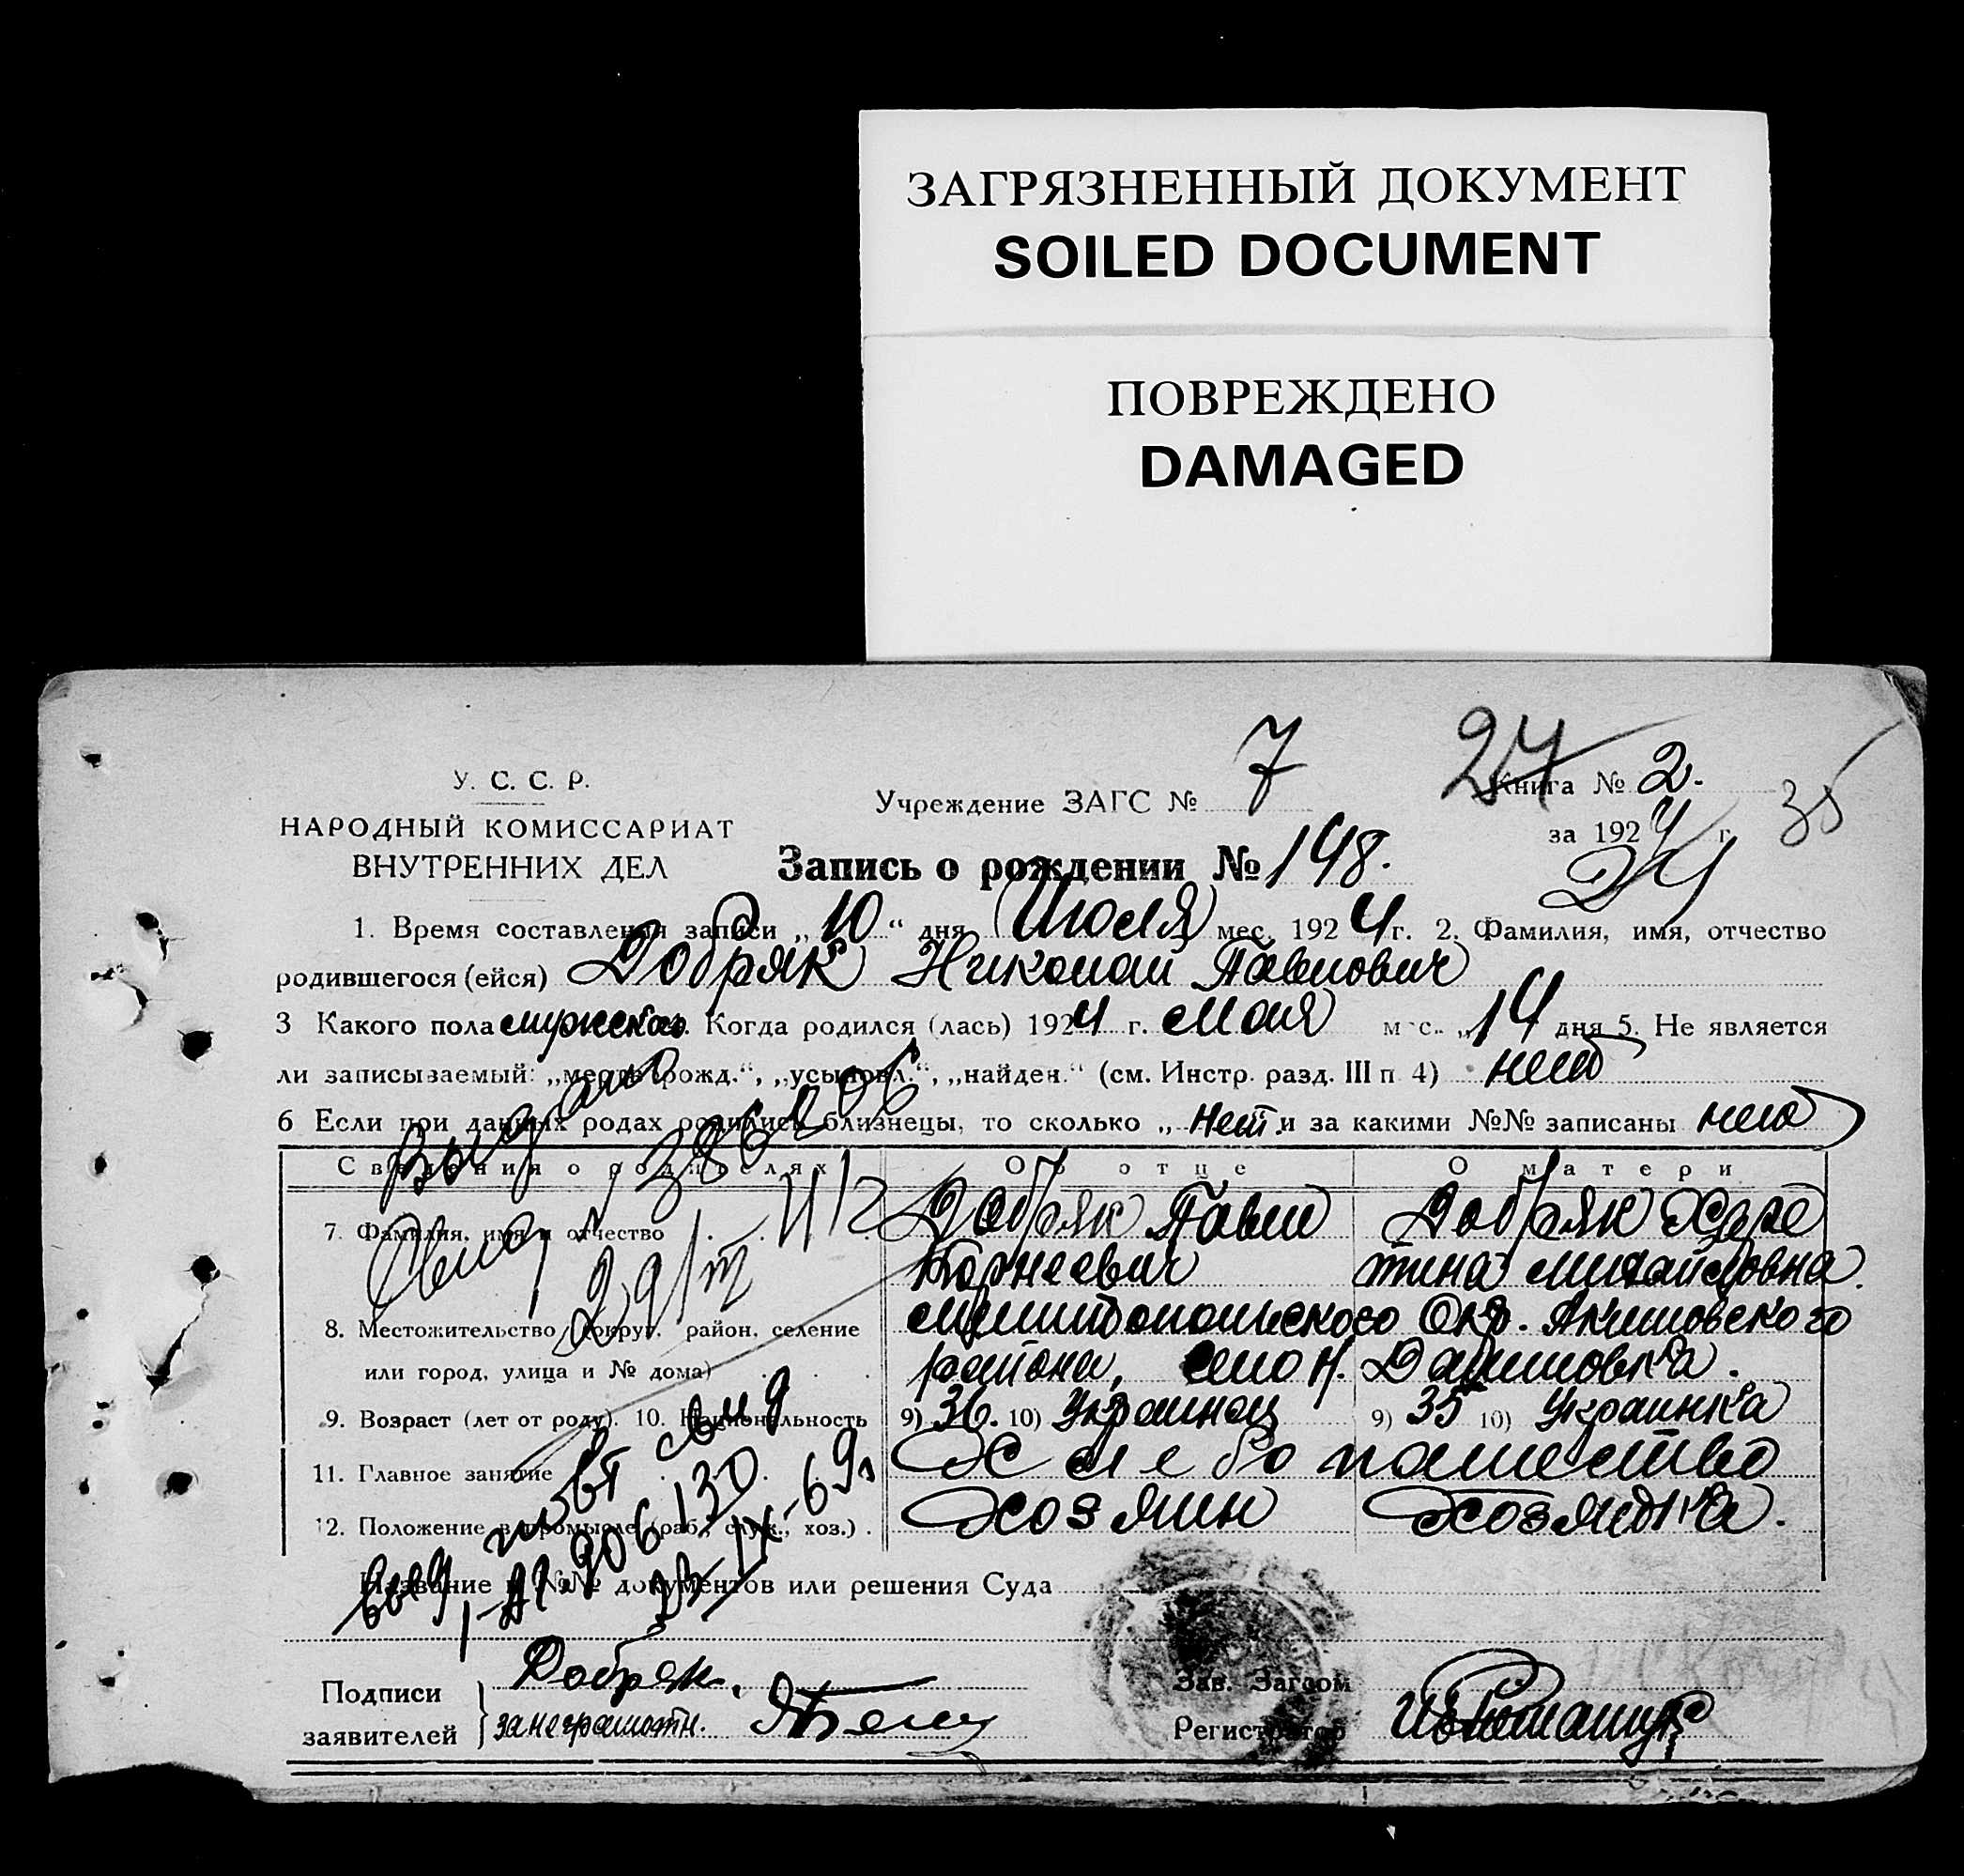 ЗАГРЯЗНЕННЫЙ ДОКУМЕНТ
SOILED DOCUMENT
ПОВРЕЖДЕНО
DAMAGED
У. С. С. Р.
НАРОДНЫЙ КОМИССАРИАТ
ВНУТРЕННИХ ДЕЛ
Учреждение ЗАГС № 7
24
Книга № 2.
за 1924 г.
35
24
Запись о рождении № 148.
1. Время составления записи „10“ дня Июля мес. 1924 г. 2. Фамилия, имя, отчество
родившегося (ейся) Добряк Николай Павлович
3 Какого пола мужского. Когда родился (лась) 1924 г. Мая мес. „14 дня 5. Не является
ли записываемый: „мертворожд.“, „усыновл.“, „найден.“ (см. Инстр. разд. III п 4) нет
6 Если при данных родах родились близнецы, то сколько „нет и за какими №№ записаны нет
Выдано
Сведения о родителях Об отце О матери
7. Фамилия, имя и отчество Добряк Павел Добряк Харе
Корнеевич тина Михайловна
8. Местожительство (округ, район, селение Мелитопольского Окр. Акимовского
или город, улица и № дома) района, село Н. Даниловка.
9. Возраст (лет от роду). 10. Национальность 9) 36. 10) Украинец 9) 35 10) Украинка
11. Главное занятие Хлебопашество
12. Положение в промысле (раб., служ., хоз.) Хозяин Хозяйка.
выд повт свид
906130
Название и №№ документов или решения Суда
Подписи
заявителей
Добряк.
за неграмотн.
Зав. Загсом
Регистратор